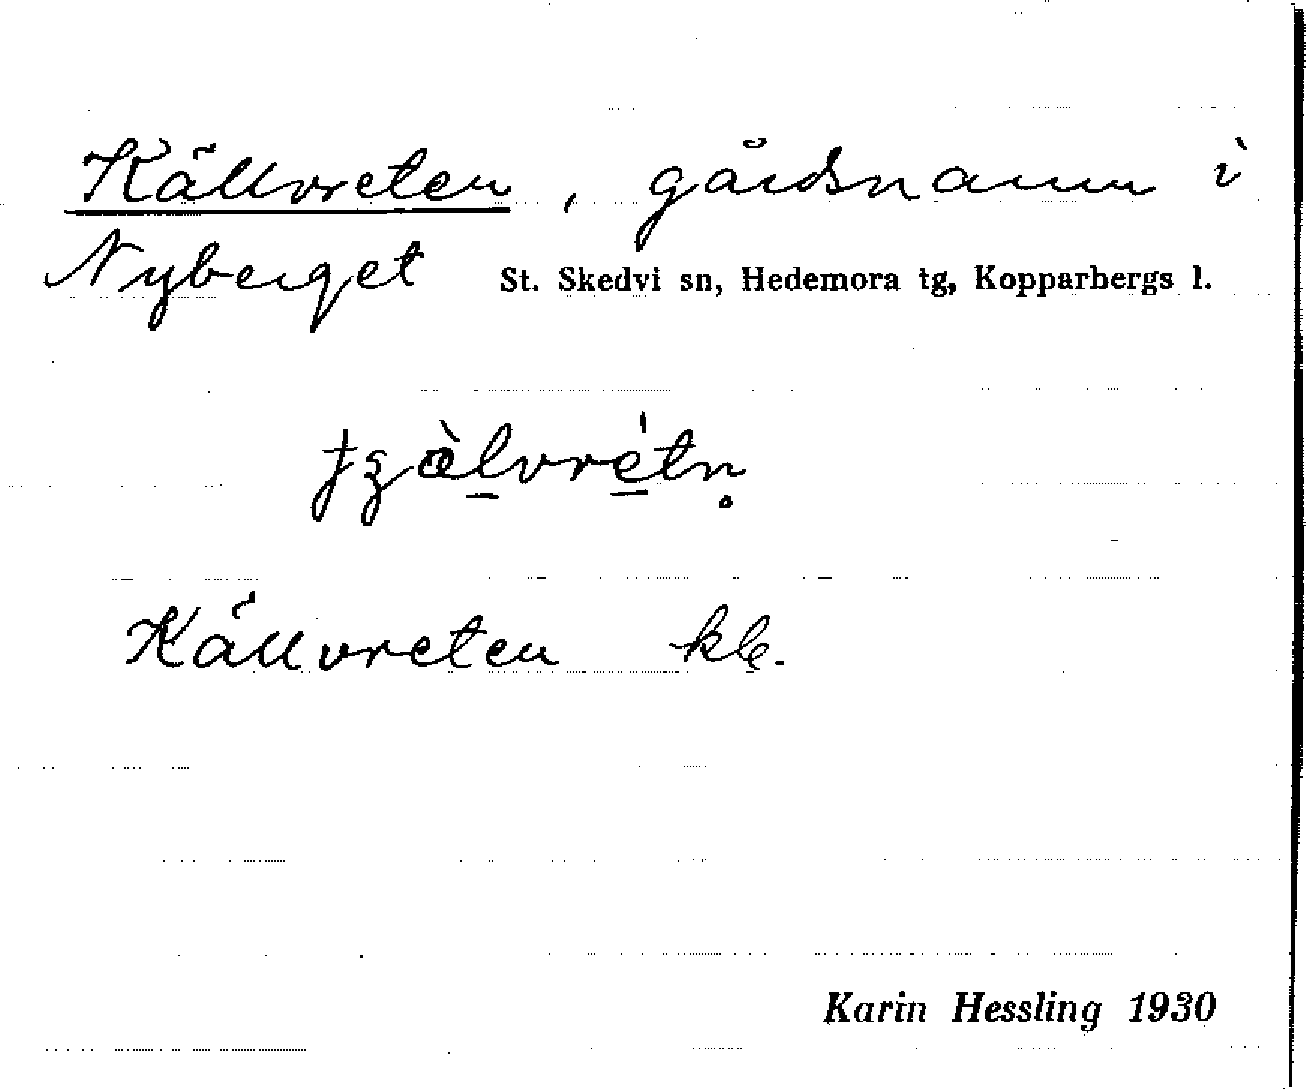 Källvreten, gårdsnamn i
Nyberget St. Skedvi sn, Hedemora tg, Kopparbergs l.
Källvreten kb.
Karin Hessling 1930